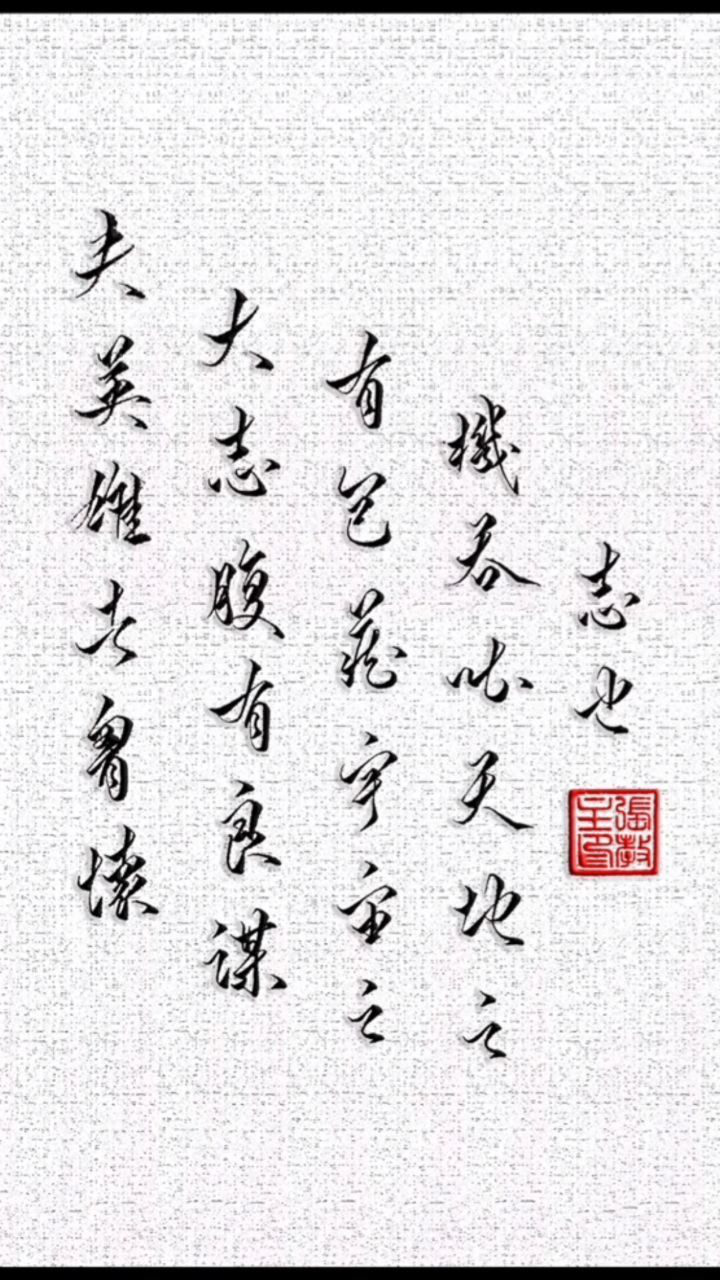 夫英雄者胷懷
大志腹有良謀
有包藏宇宙之
機吞吐天地之
志也
張教主印